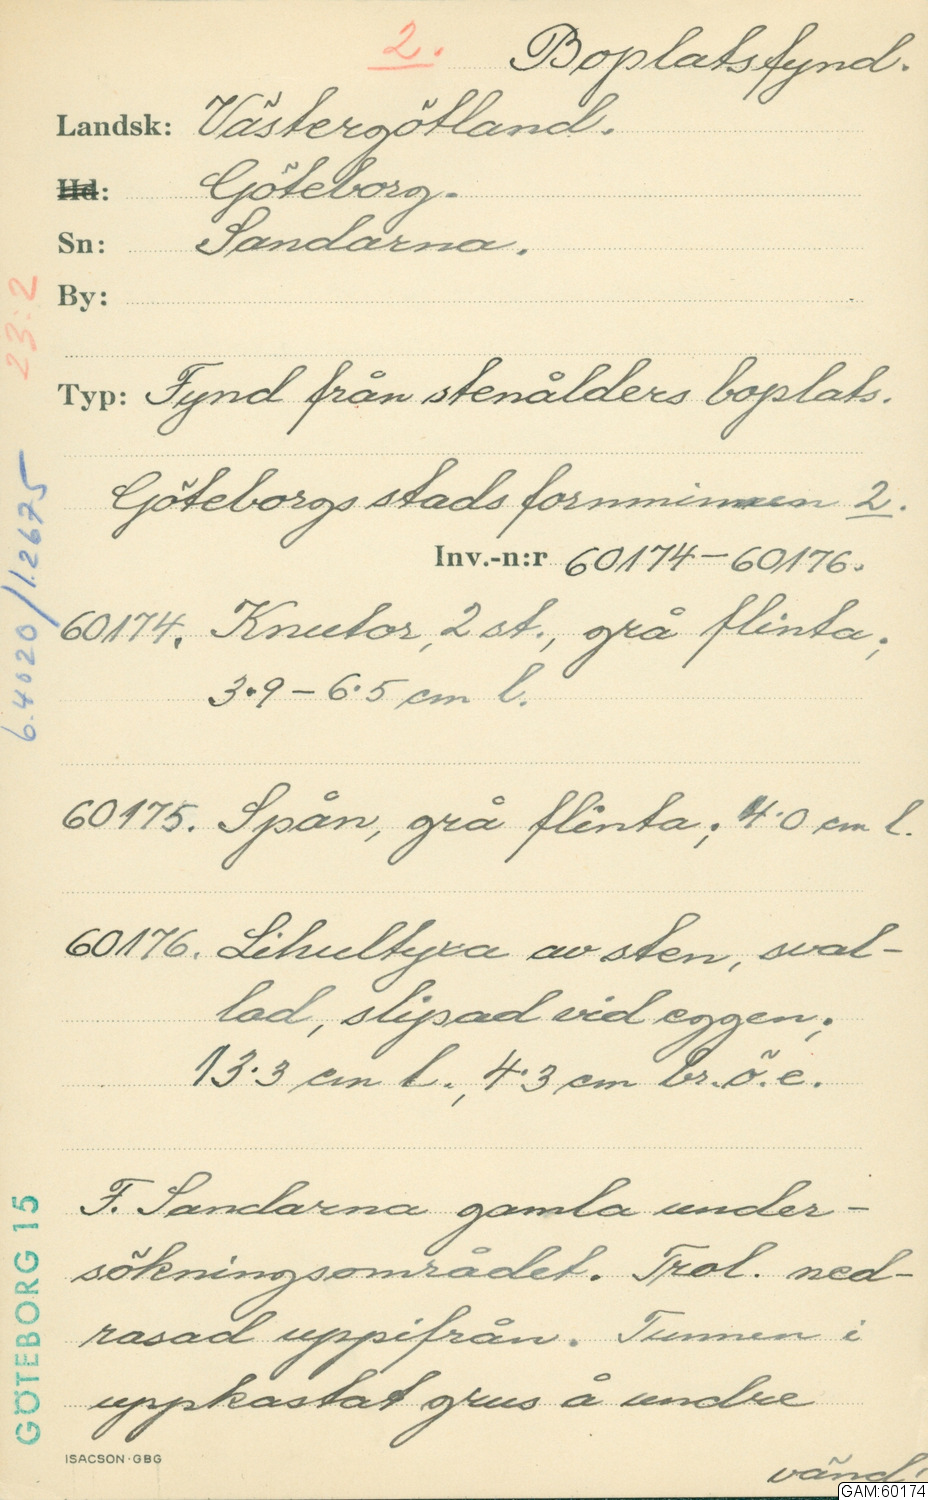 2. Boplatsfynd.
Landsk: Västergötland.
Hd: Göteborg.
Sn: Sandarna.
By:
23:2
Typ: Fynd från stenålders boplats.
Göteborgs stads fornminnen 2.
Inv.-n:r 60174-60176.
6.4020/1.2675
60174. Knutor, 2 st., grå flinta;
3.9-6.5 cm l.
60175. Spån, grå flinta; 4.0 cm l.
60176. Lihultyxa av sten, sval-
lad, slipad vid eggen;
13.3 cm l., 4.3 cm br. ö. e.
F. Sandarna gamla under-
sökningsområdet. Trol. ned-
rasad uppifrån. Tunnen i
uppkastat grus å undre
vänd!
GÖTEBORG 15
ISACSON·GBG
GAM:60174